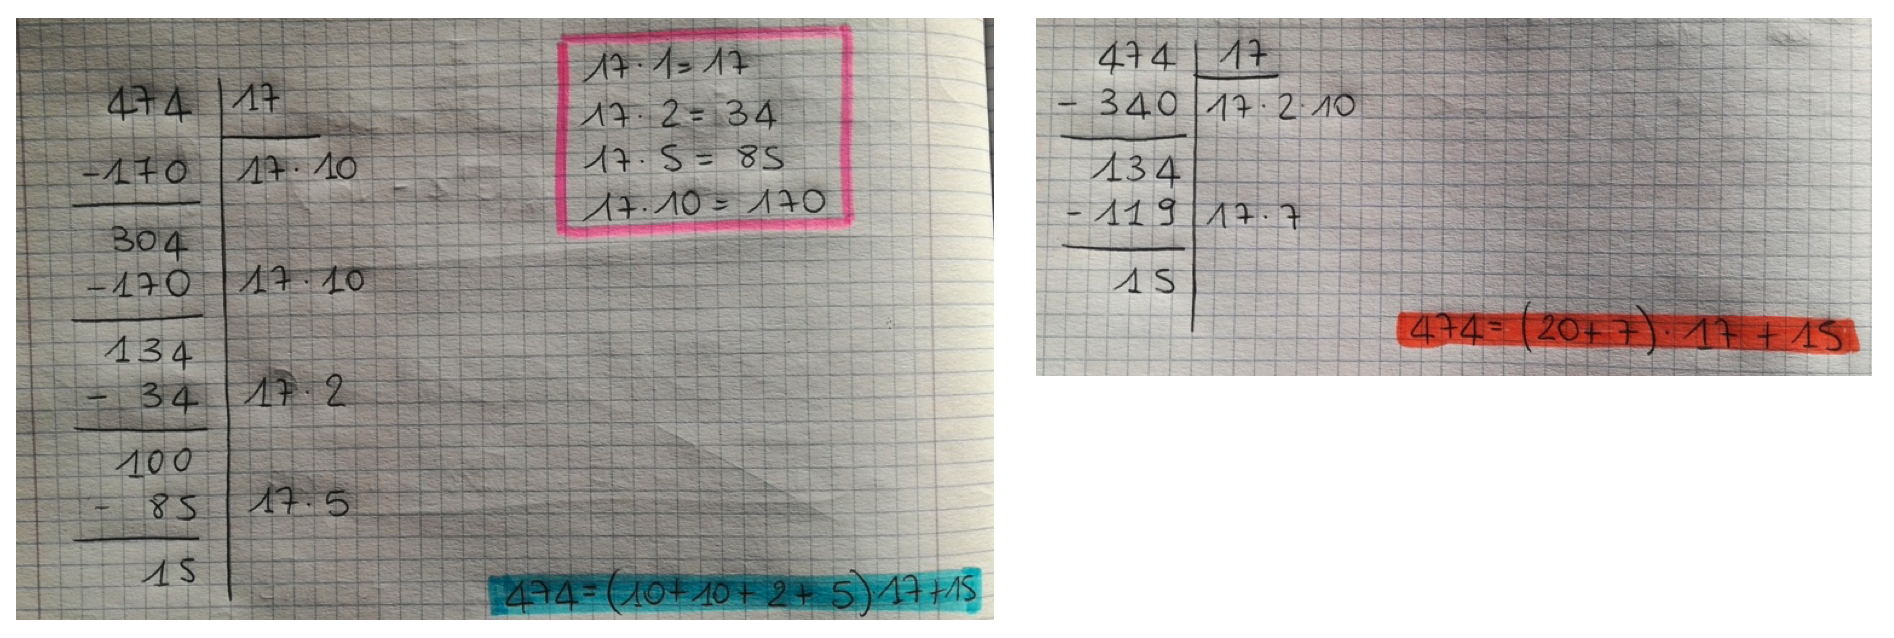 474 17
-170 17·10
304
-170 17·10
134
- 34 17·2
100
- 85 17·5
15
17·1=17
17·2=34
17·5=85
17·10=170
474=(10+10+2+5)·17+15
474 17
-340 17·2·10
134
-119 17·7
15
474=(20+7)·17+15